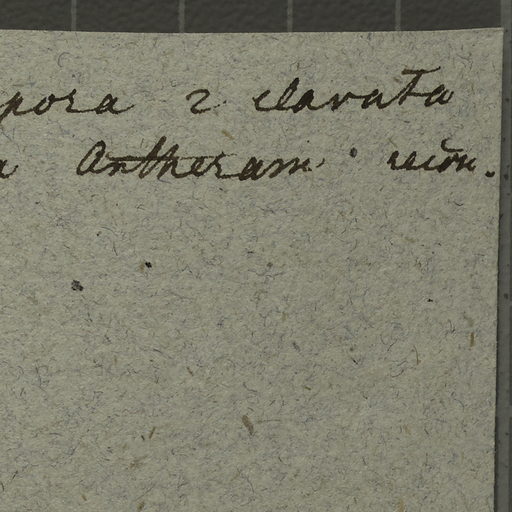 pora 2 clavata
a Antheram